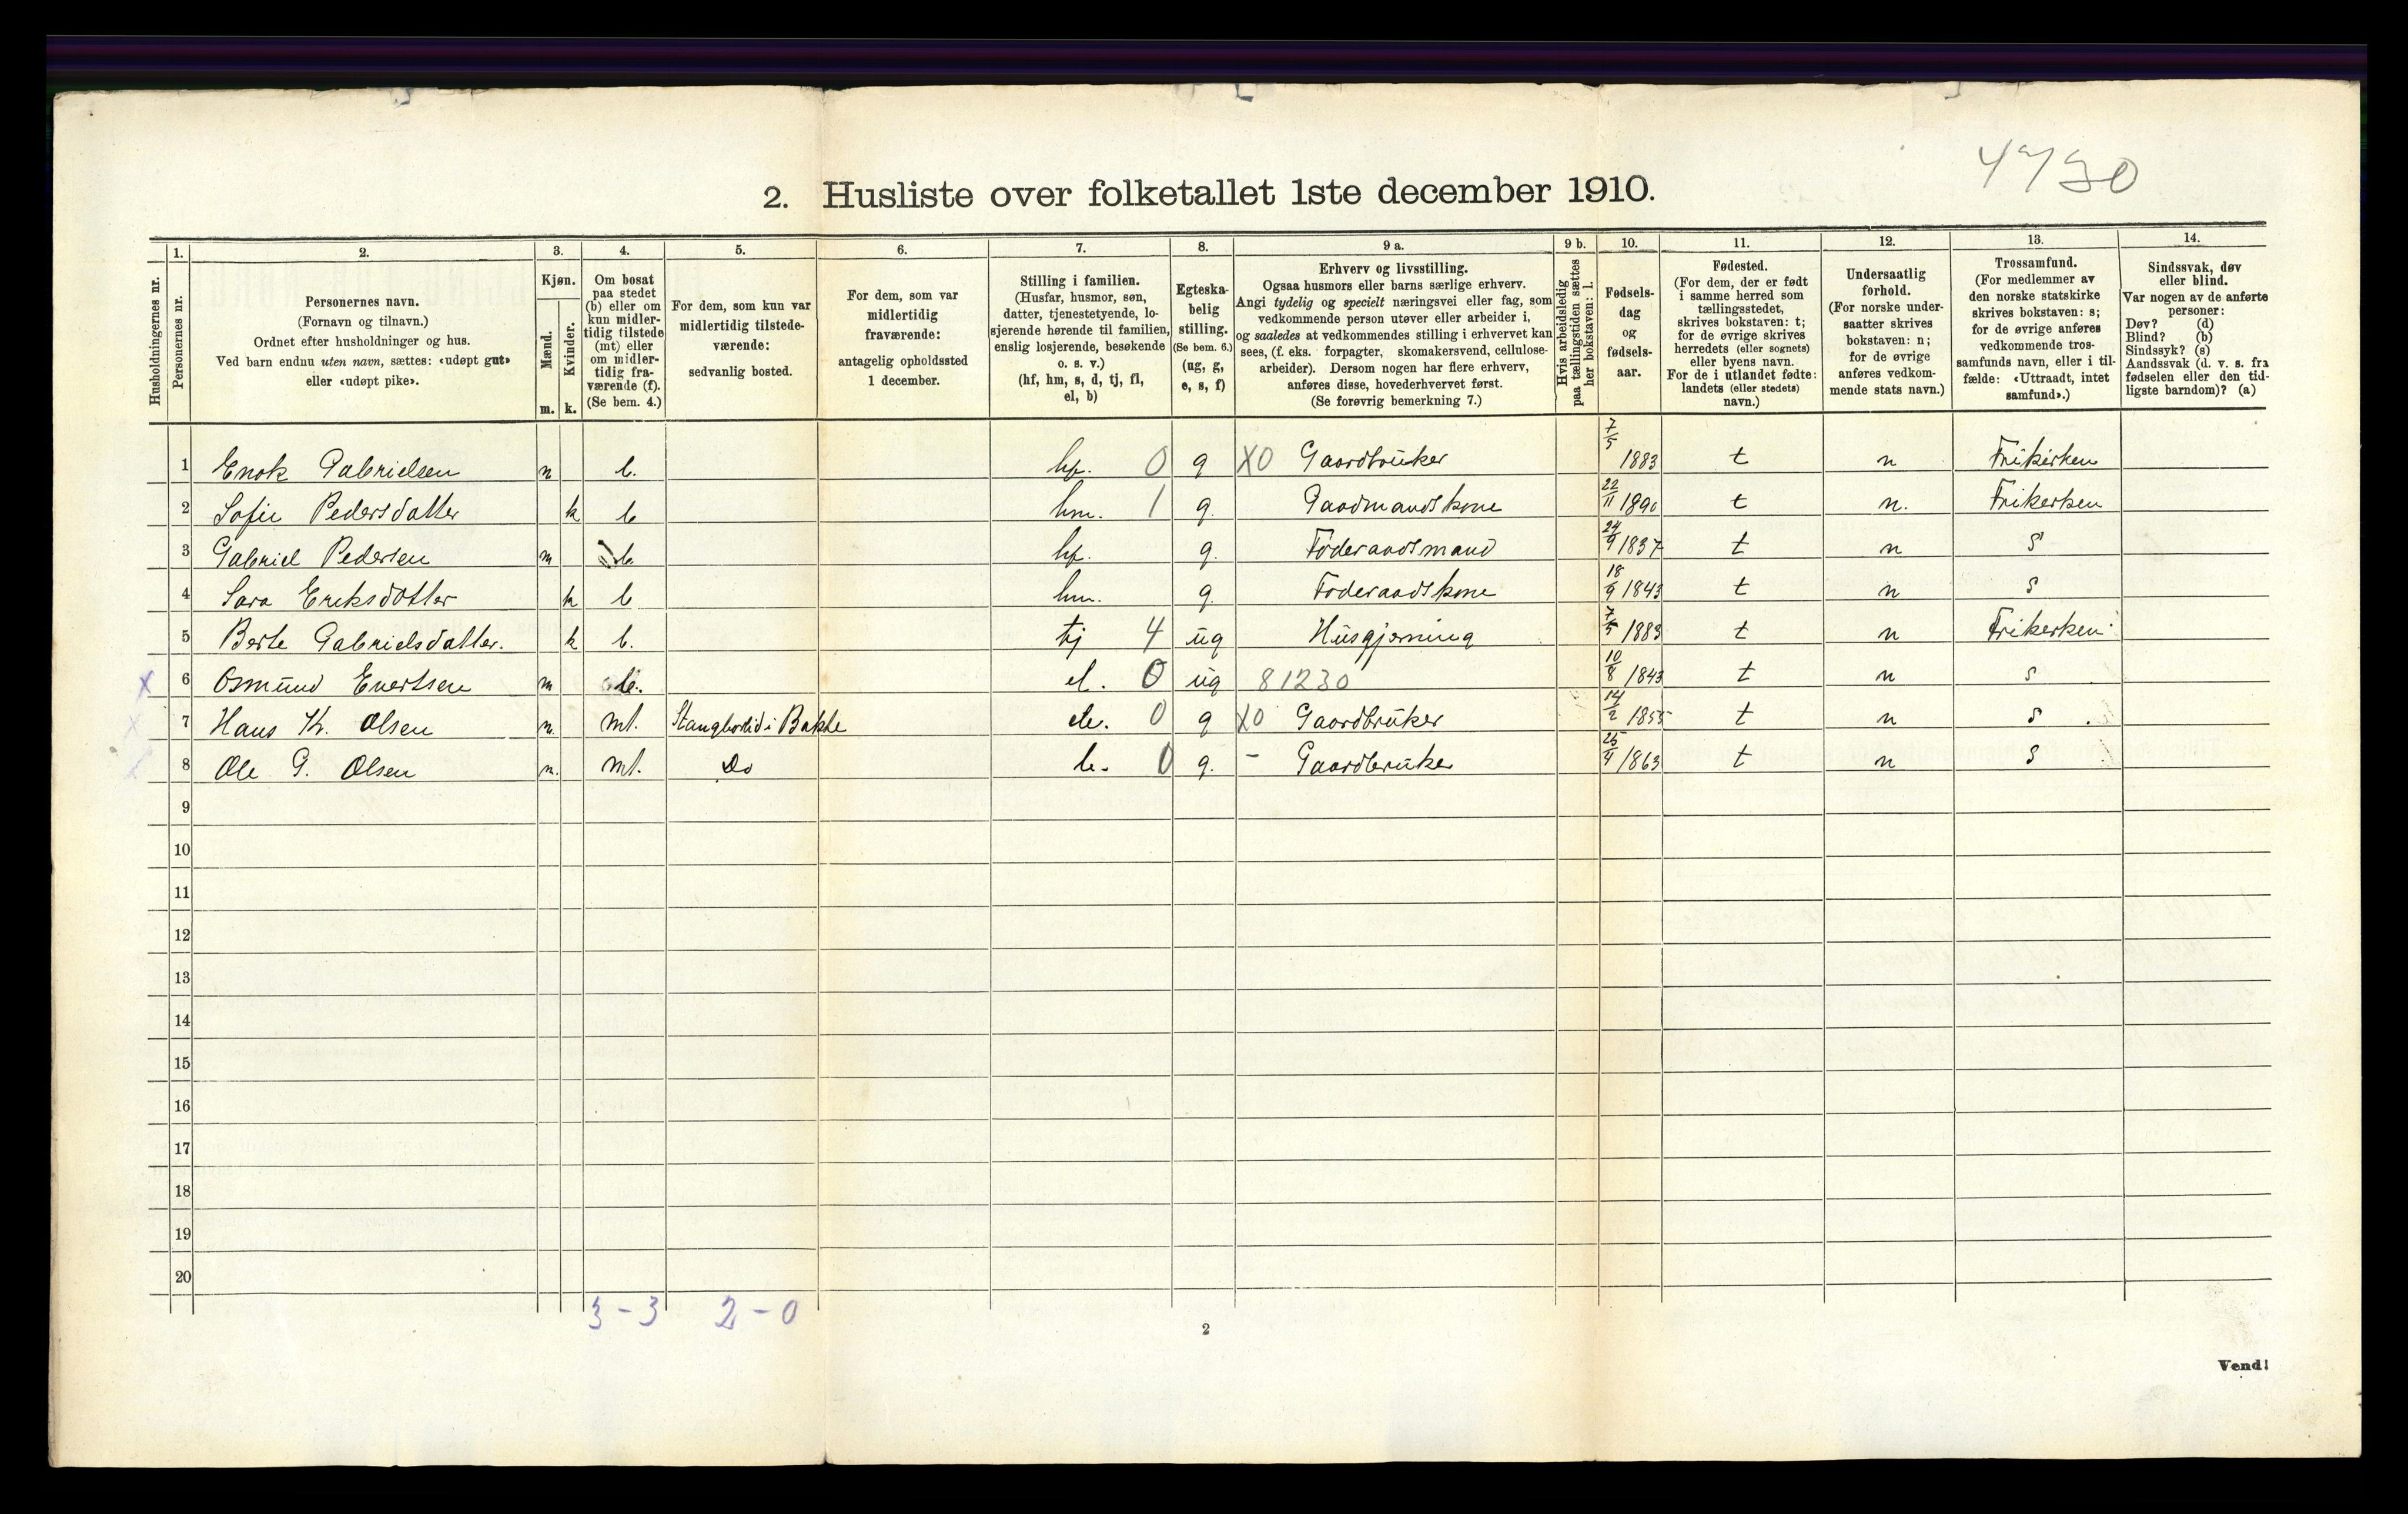 4730
2. Husliste over folketallet 1ste december 1910.
Husholdningernes nr.
1.
Personernes nr.
2.
Personernes navn.
(Fornavn og tilnavn.)
Ordnet efter husholdninger og hus.
Ved barn endnu uten navn, sættes: «udøpt gut»
eller «udøpt pike».
3.
Kjøn.
Mænd.
Kvinder.
m. k.
4.
Om bosat
paa stedet
(b) eller om
kun midler-
tidig tilstede
(mt) eller
om midler-
tidig fra-
værende (f).
(Se bem. 4.)
5.
For dem, som kun var
midlertidig tilstede-
værende:
sedvanlig bosted.
6.
For dem, som var
midlertidig
fraværende:
antagelig opholdssted
1 december.
7.
Stilling i familien.
(Husfar, husmor, søn,
datter, tjenestetyende, lo-
sjerende hørende til familien,
enslig losjerende, besøkende
o. s. v.)
(hf, hm, s, d, tj, fl,
el, b)
8.
Egteska-
belig
stilling.
(Se bem. 6.)
(ug, g,
e, s, f)
9 a.
Erhverv og livsstilling.
Ogsaa husmors eller barns særlige erhverv.
Angi tydelig og specielt næringsvei eller fag, som
vedkommende person utøver eller arbeider i,
og saaledes at vedkommendes stilling i erhvervet kan
sees, (f. eks. forpagter, skomakersvend, cellulose-
arbeider). Dersom nogen har flere erhverv,
anføres disse, hovederhvervet først.
(Se forøvrig bemerkning 7.)
9 b.
Hvis arbeidsledig
paa tællingstiden sættes
her bokstaven: l.
10.
Fødsels-
dag
og
fødsels-
aar.
11.
Fødested.
(For dem, der er født
i samme herred som
tællingsstedet,
skrives bokstaven: t;
for de øvrige skrives
herredets (eller sognets)
eller byens navn.
For de i utlandet fødte:
landets (eller stedets)
navn.)
12.
Undersaatlig
forhold.
(For norske under-
saatter skrives
bokstaven: n;
for de øvrige
anføres vedkom-
mende stats navn.)
13.
Trossamfund.
(For medlemmer av
den norske statskirke
skrives bokstaven: s;
for de øvrige anføres
vedkommende tros-
samfunds navn, eller i til-
fælde: «Uttraadt, intet
samfund».)
14.
Sindssvak, døv
eller blind.
Var nogen av de anførte
personer:
Døv? (d)
Blind? (b)
Sindssyk? (s)
Aandssvak (d. v. s. fra
fødselen eller den tid-
ligste barndom)? (a)
1 Enok Gabrielsen m b. hf. 0 g X0 Gaardbruker 7/5 1883 t n Frikirken
2 Sofie Pedersdatter k b hm. 1 g. Gaardmandskone 22/11 1890 t n. Frikerken
3 Gabriel Pedersen m b hf. g. Føderaadsmand 24/9 1837 t n s
4 Sara Eriksdatter k b hm. g. Føderaadskone 18/9 1843 t n s
5 Berte Gabrielsdatter. k b. tj 4 ug Husgjerning 7/5 1883 t n Frikerken
X 6 Osmund Evertsen m b. el. 0 ug 81230 10/8 1843 t n s
X 7 Hans K. Olsen m. mt. Stangborlid i Bakke b. 0 g X0 Gaardbruker 14/2 1855 t n s
8 Ole G. Olsen m. mt. Do b. 0 g. - Gaardbruker 25/4 1863 t n s
9
10
11
12
13
14
15
16
17
18
19
20
3 - 3 2 - 0
2
Vend!